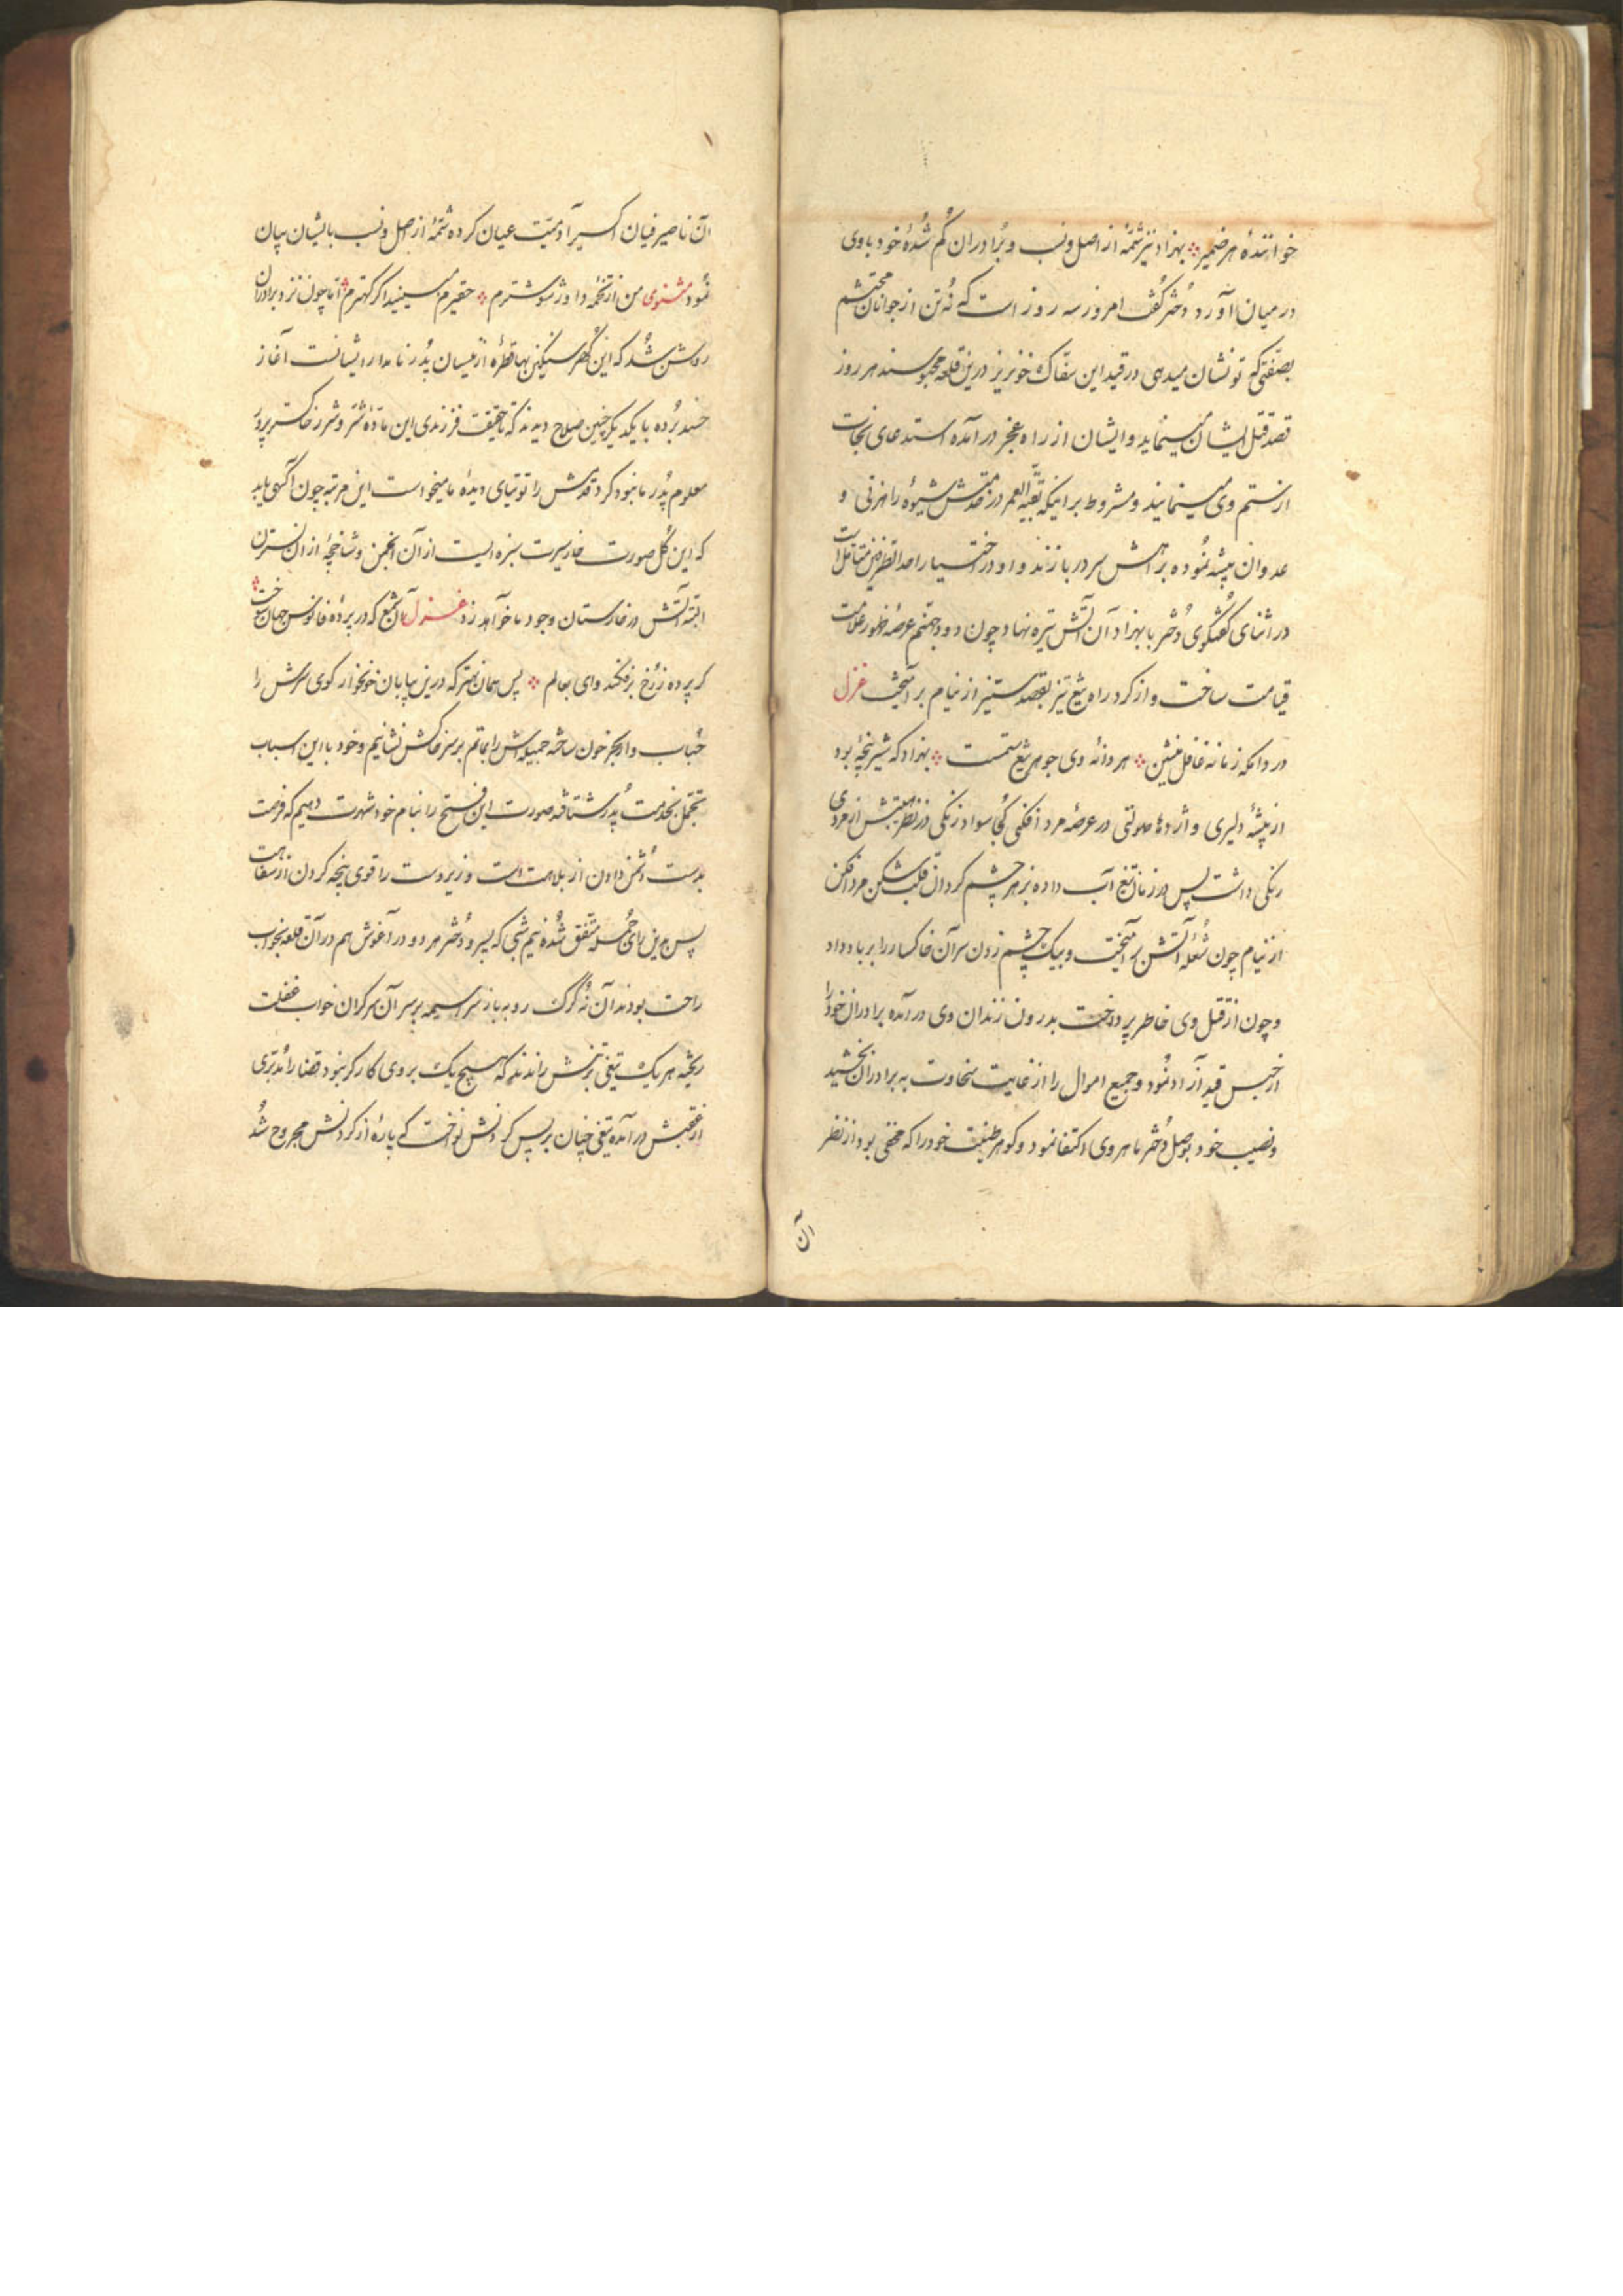 خوانندهٔ هر ضمیر ⁘ بهزاد نیز شمّهٔ از اصل و نسب و بُرادران گُم شُدهٔ خود باوی
درمیان آورد دُختر گُفت امروز سه روز است که نُه تن از جوانان محتشم
بصفتی که تو نشان میدهی در قید این سفّاک خونریز درین قلعه محبوسند هر روز
قصد قتل ایشان مینماید و ایشان از راه عجز درآمده استدعای نجات
از ستم وی مینمایند و مشروط بر اینکه بقیّه العمر در خدمتش شیوه راهزنی و
عدوان پیشه نموده براهش سر دربازند و او در اختیار احدالطرفین متأمّل است
در اثنای گفتگوی دُختر با بهزاد آن آتش تیره نهاد چون دود جهنّم عرصهٔ ظهور علامت
قیامت ساخت و از گرد راه تیغ تیز بقصد ستیز از نیام برآهیخت غزل
در دانکه زمانه غافل منشین ⁘ هر دانهٔ وی جوهر تیغ ستمست ⁘ بهزاد که شیر بچهٔ بود
از بیشهٔ دلیری و اژدها صولتی در عرصهٔ مرد افکنی کُجا سواد زنگی در نظر همّتش از مردی
رنگی داشت پس در زمان تیغ آب داده بزهر چشم گردان قلب شکن مرد افکن
از نیام چون شُعلهٔ آتش برآهیخت و بیک چشم زدن سر آن خاکسار را برباد داد
و چون از قتل وی خاطر پرداخت بدرون زندان وی درآمده برادران خود را
از حبس قید آزاد نمود و جمیع اموال را از غایت سخاوت به برادران بخشید
و نصیب خود بوصل دُختر ماهروی اکتفا نمود و گوهر طینت خود را که مخفی بود از نظر
آن
آن ناصیرفیان اکسیر آدمیّت عیان کرده شمّهٔ از اصل و نسب بایشان بیان
نمُود مثنوی من از تخمه داور شوشترم ⁘ حقیرم مبینید اگر کهترم ⁘ امّا چون نزد برادران
روشن شُد که این گُهر سنگین بها قطرهٔ از نیسان پدر نامدار ایشانست آغاز
حسد بُرده با یکدیگر چنین صلاح دیدند که تا حقیقت فرزندی این مادّهٔ شرّ و شرر خاکستر پرور
معلوم پدر ما نبود گرد قدمش را توتیای دیدهٔ ما میخواست این مرتبه چون آگهی یابد
که این گُل صورت خار سیرت سبزه ایست از آن انجمن و شاخچهٔ از ان نسترن
البتّه آتش در خارستان وجود ما خواهد زد غزل آن شمع که در پردهٔ فانوس جهان سوخت ⁘
گر پرده ز رُخ برفکند وای بعالم ⁘ پس همان بهتر که درین بیابان خونخوار گوی سرش را
حُباب وار بحر خون ساخته جمیله اش را بماتم بر سر خاکش نشانیم و خود با این اسباب
تجمّل بخدمت پدر شتافته صورت این فتح را بنام خود شهرت دهیم که فرصت
بدست دُشمن دادن از بلاهت است و زیردست را قوی پنجه کردن از سفاهت
پس برین رای جمله متّفق شُده نیم شبی که پسر و دُختر هر دو در آغوش هم در آن قلعه بخواب
راحت بودند آن نُه گرگ روبه باز سراسیمه بر سر آن سرگران خواب غفلت
ریخته هر یک تیغی بتنش راندند که هیچ یک بروی کارگر نبود قضا را نُدبّری
از عقبش درآمده تیغی چنان بر پس گردنش نواخت که پارهٔ از گردنش مجروح شُد